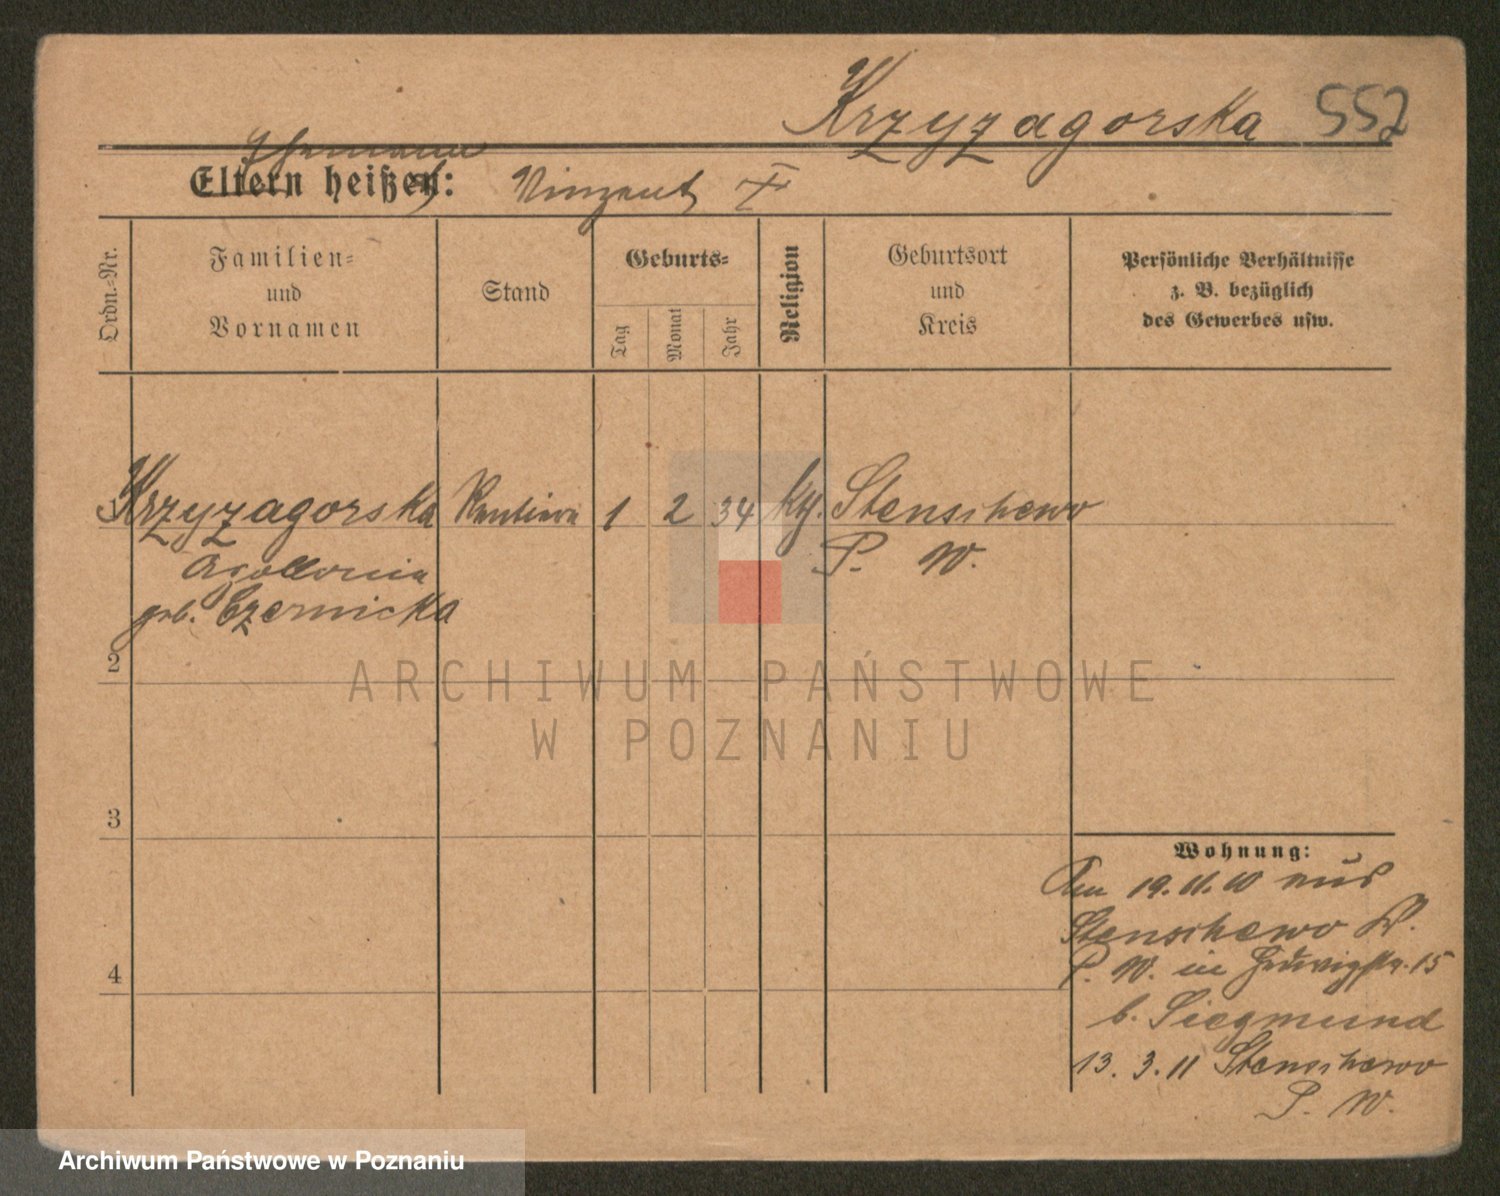 Krzyzagorska 552
Ehemann
Eltern heißen: Vinzent †
Ordn.-Nr.
Familien-
und
Vornamen
Stand
Geburts-
Tag
Monat
Jahr
Religion
Geburtsort
und
Kreis
Persönliche Verhältnisse
z. B. bezüglich
des Gewerbes usw.
1 Krzyzagorska Rentiere 1 2 34 kth. Stenschewo
Apollonia P. W.
geb. Czarnicka
2
3
4
Wohnung:
Am 19.11.10 aus
Stenschewo Kr.
P. W. in Hedwigstr. 15
b. Siegmund
13.3.11 Stenschewo
P. W.
ARCHIWUM PAŃSTWOWE
W POZNANIU
Archiwum Państwowe w Poznaniu